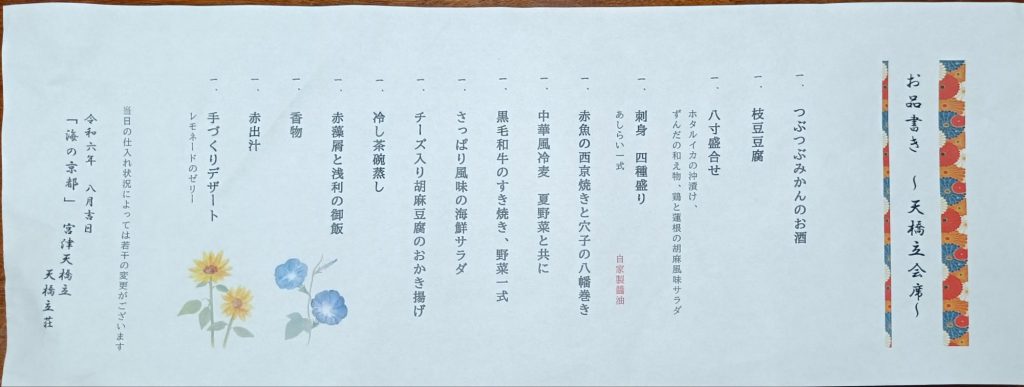 お品書き　～天橋立会席～
一．つぶつぶみかんのお酒
一．枝豆豆腐
一．八寸盛合せ
ホタルイカの沖漬け、
ずんだの和え物、鶏と蓮根の胡麻風味サラダ
一．刺身　四種盛り
あしらい一式　自家製醤油
一．赤魚の西京焼きと穴子の八幡巻き
一．中華風冷麦　夏野菜と共に
一．黒毛和牛のすき焼き、野菜一式
一．さっぱり風味の海鮮サラダ
一．チーズ入り胡麻豆腐のおかき揚げ
一．冷し茶碗蒸し
一．赤藻屑と浅利の御飯
一．香物
一．赤出汁
一．手づくりデザート
レモネードのゼリー
当日の仕入れ状況によっては若干の変更がございます
令和六年　八月吉日
「海の京都」　宮津天橋立
天橋立荘